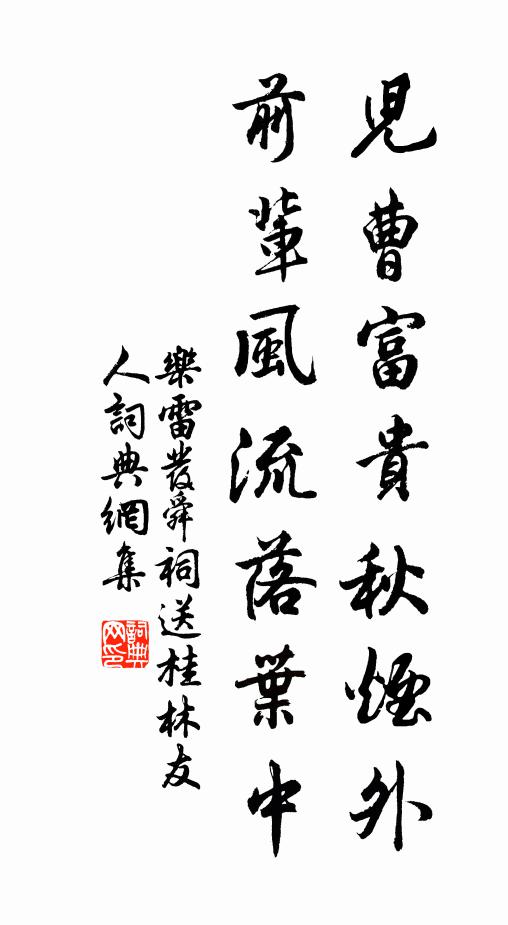 兒曹富貴秋煙外
前輩風流落葉中
樂雷發舜祠送桂林友
人詞典網集
詞典網印